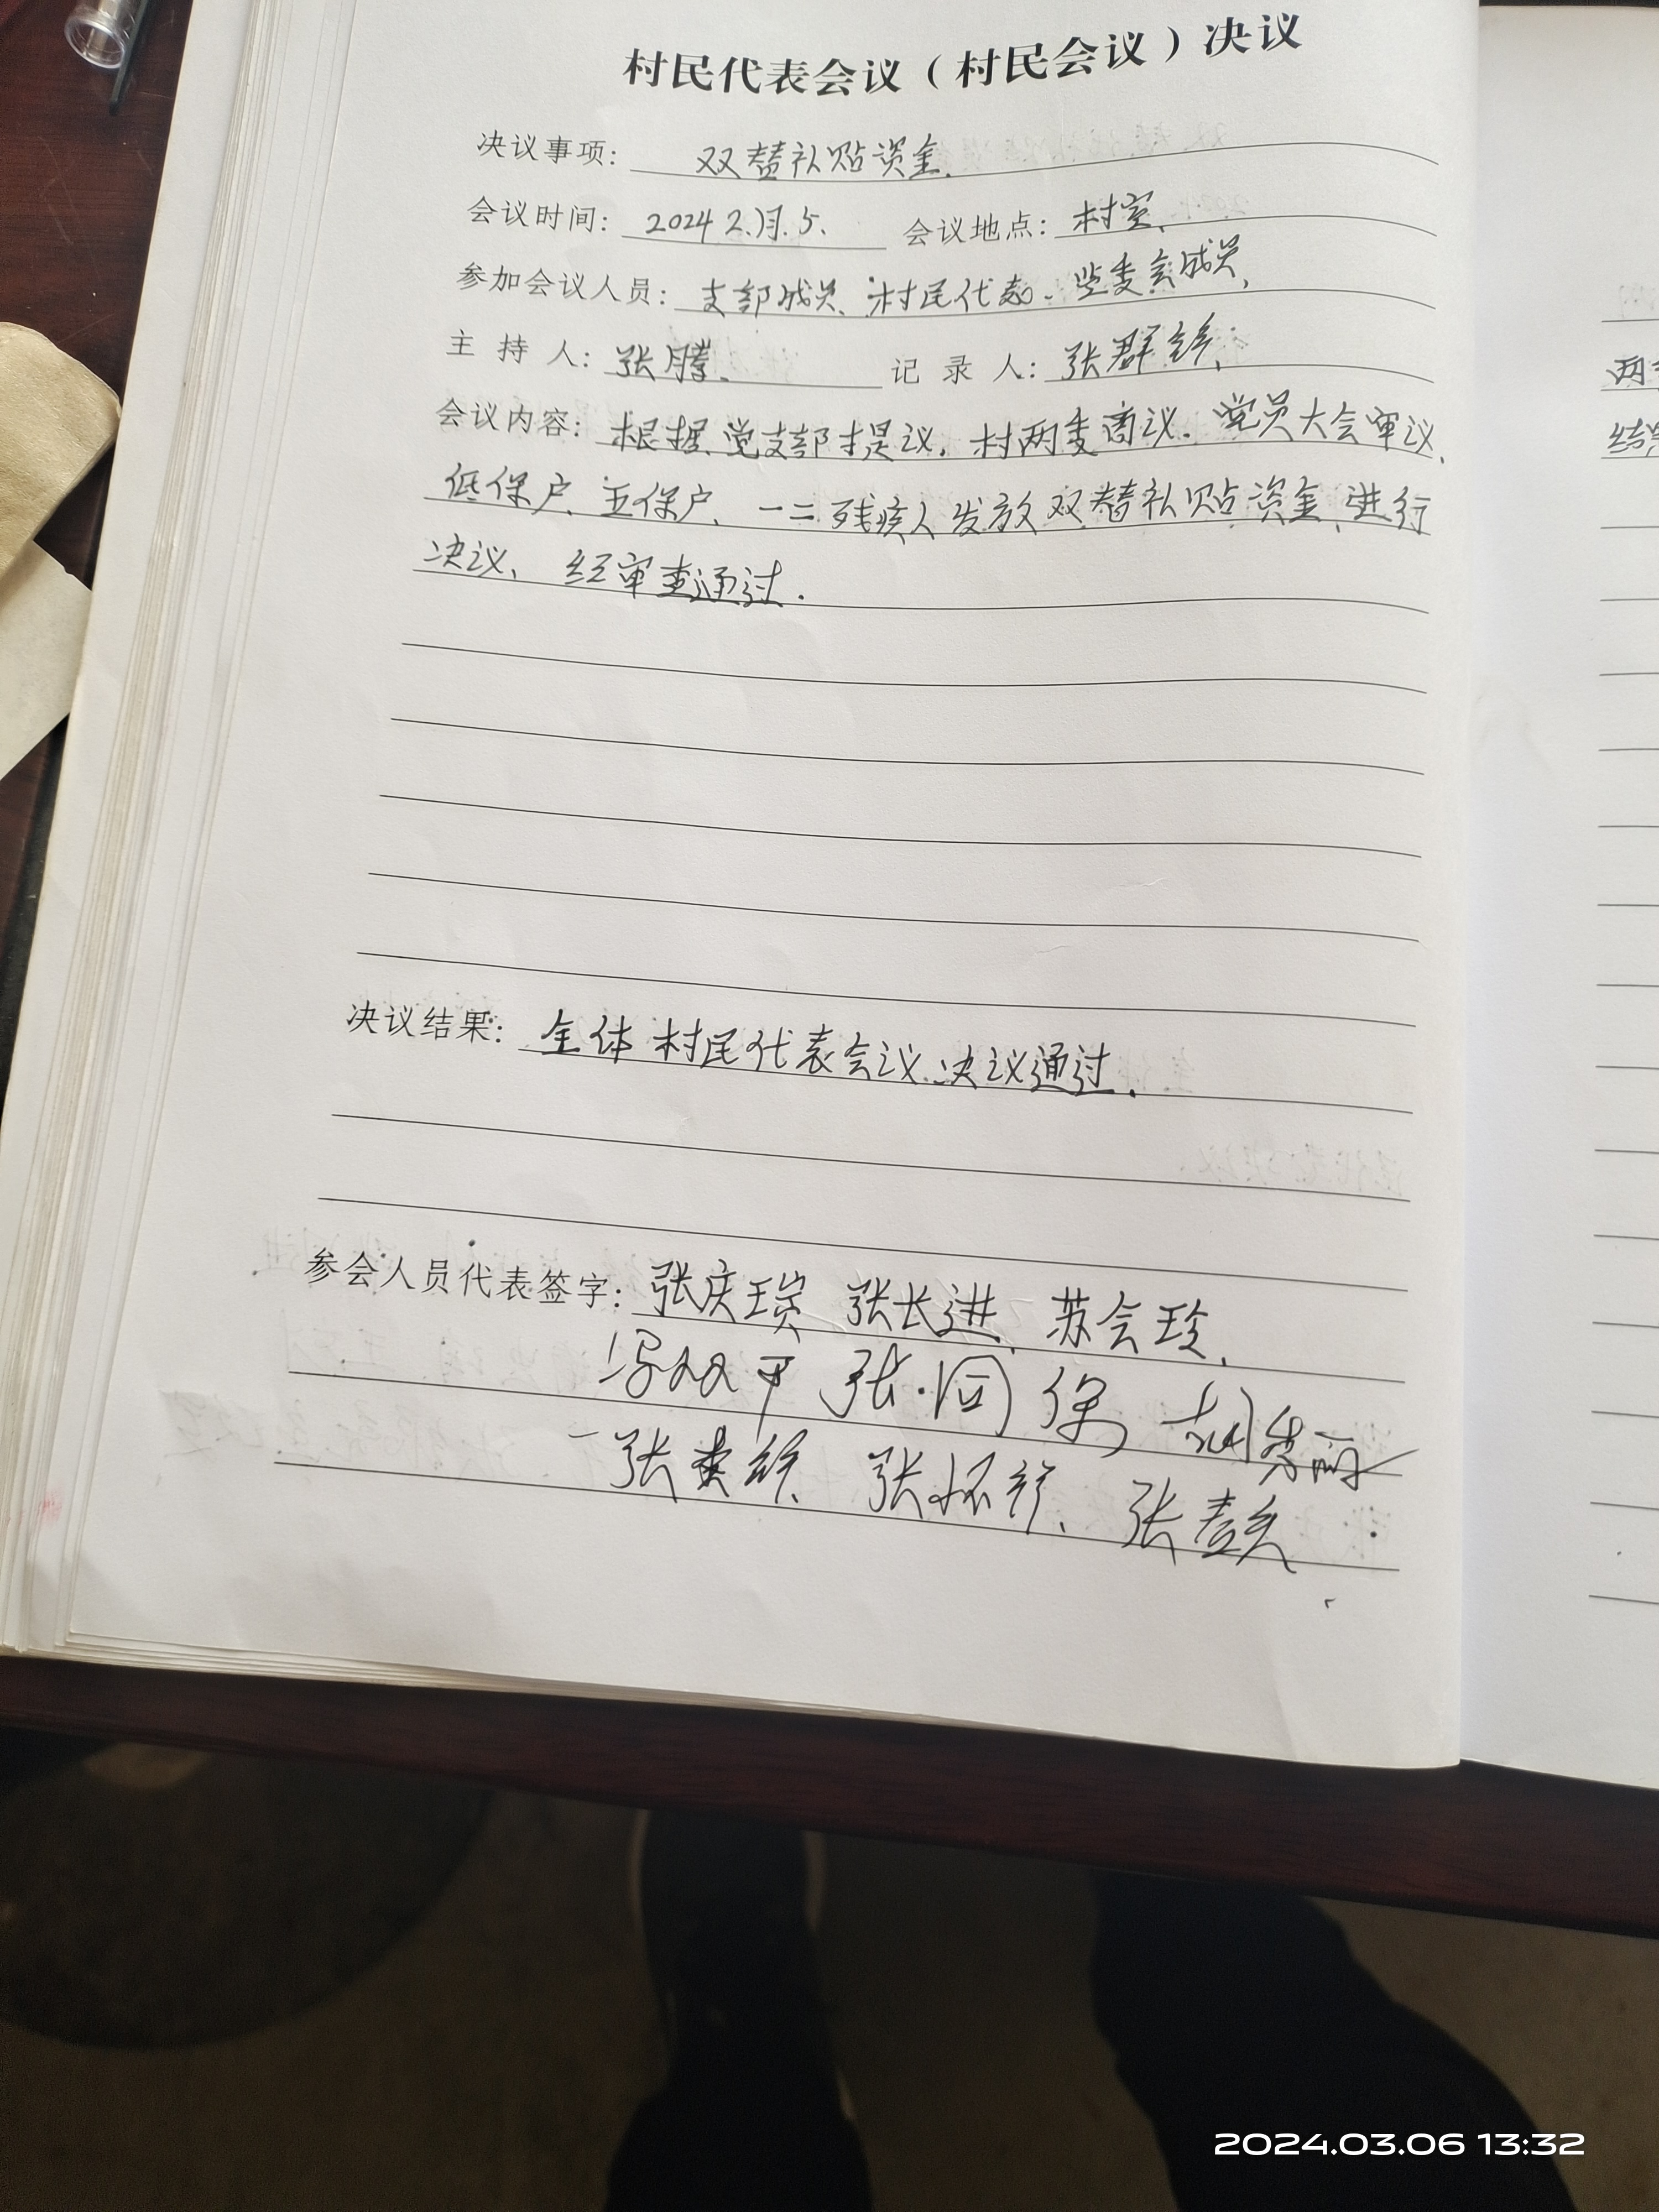 村民代表会议（村民会议）决议
决议事项： 双替补贴资金.
会议时间： 2024 2.月.5. 会议地点： 村室、
参加会议人员： 支部成员、村民代表、监委会成员、
主 持 人： 张腾、 记 录 人： 张群
会议内容： 根据党支部提议，村两委商议、党员大会审议、
低保户、五保户、一二残疾人发放双替补贴资金，进行
决议、经审查通过．
决议结果： 全体村民代表会议决议通过、
参会人员代表签字： 张庆 张长进、苏会玲、
冯双 张 保 胡秀丽
张 张怀 张
两
2024.03.06 13:32